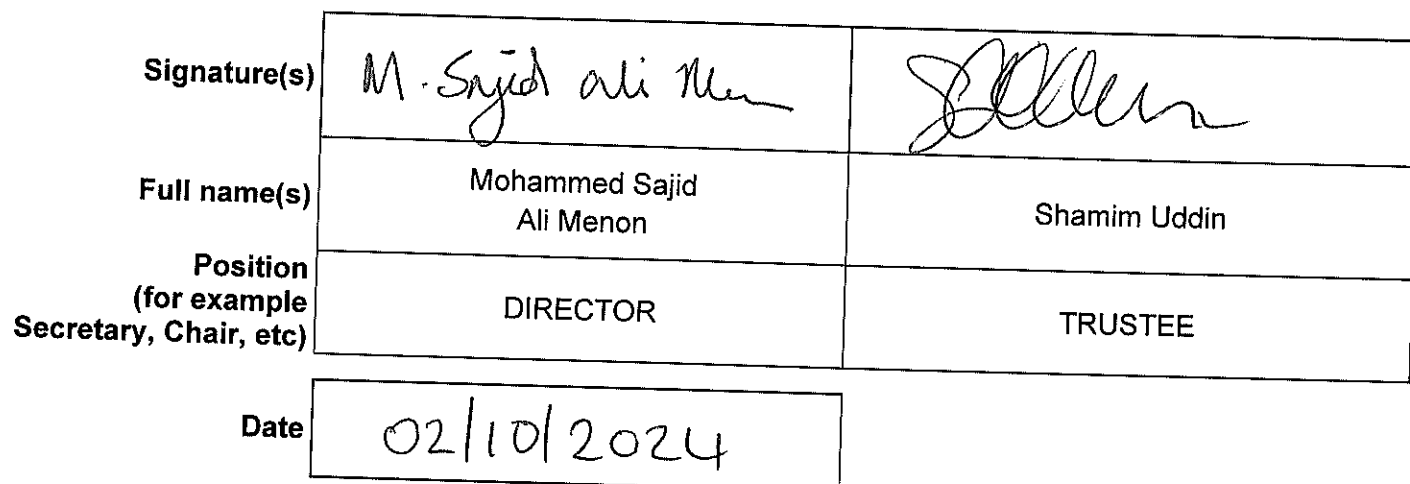 Signature(s) M. Sajid Ali Men
Full name(s) Mohammed Sajid Ali Menon Shamim Uddin
Position
(for example
Secretary, Chair, etc) DIRECTOR TRUSTEE
Date 02/10/2024